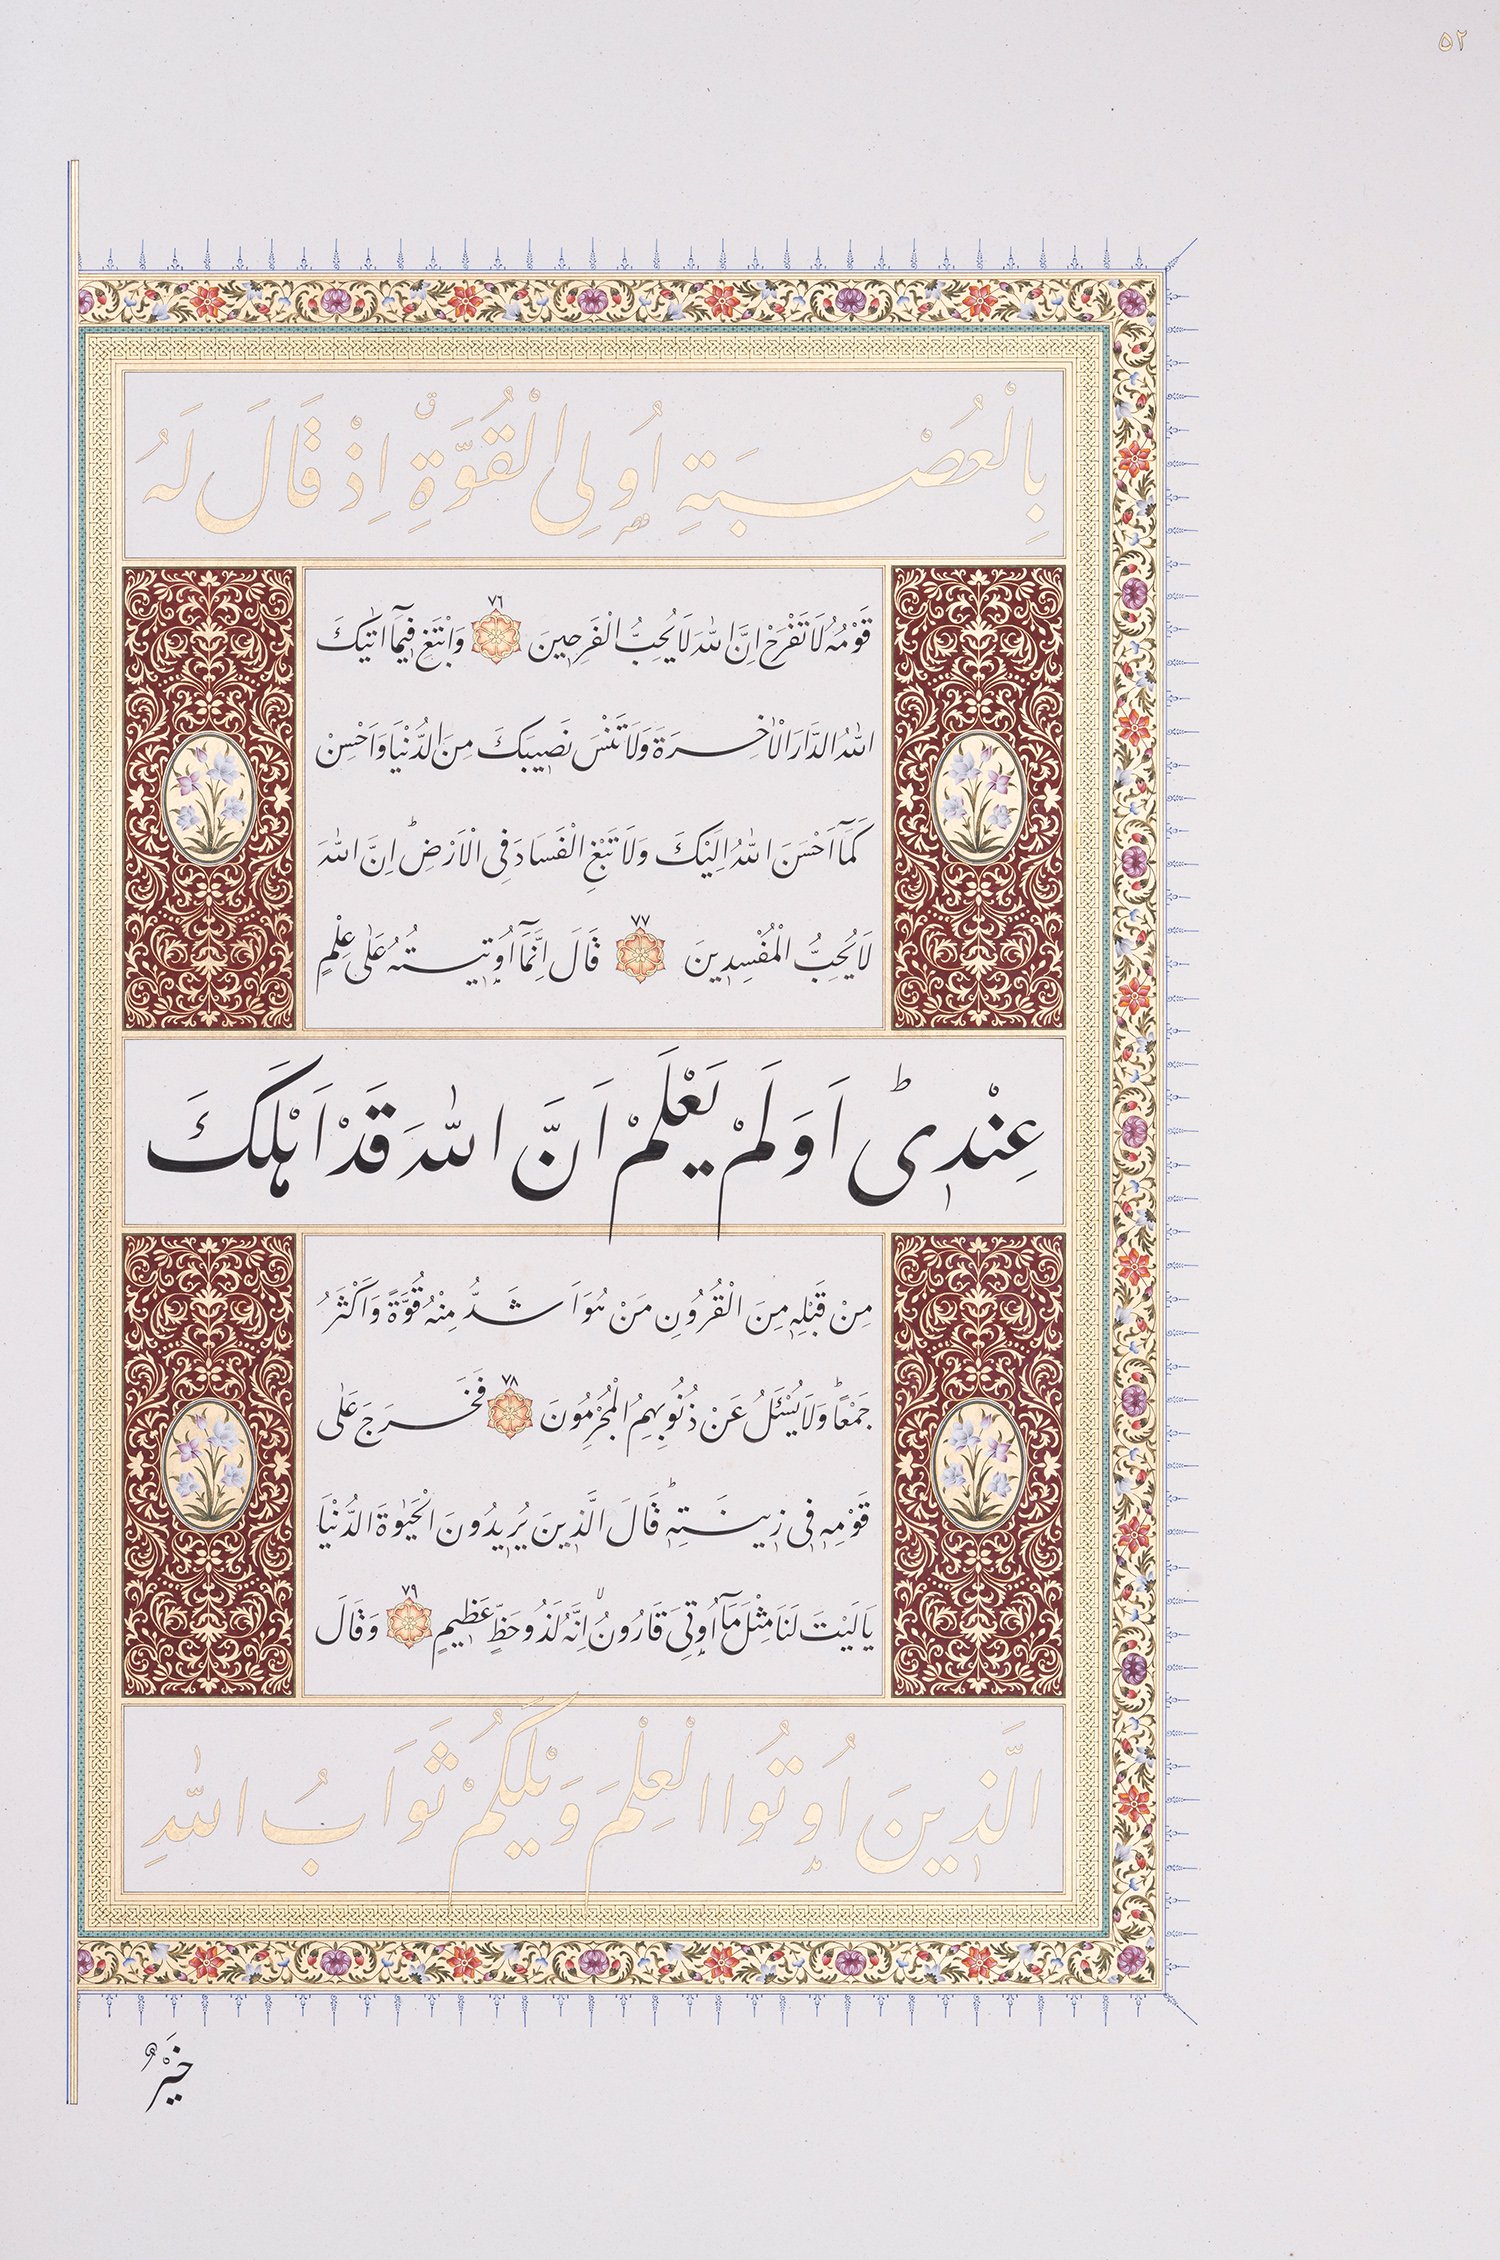 ٥٢
بِالْعُصْبَةِ اُولِى الْقُوَّةِ ق اِذْ قَالَ لَهُ
قَوْمُهُ لَا تَفْرَحْ اِنَّ اللّٰهَ لَا يُحِبُّ الْفَرِحِينَ ٧٦ وَابْتَغِ فِيمَآ اٰتٰيكَ
اللّٰهُ الدَّارَ الْاٰخِرَةَ وَلَا تَنْسَ نَصِيبَكَ مِنَ الدُّنْيَا وَاَحْسِنْ
كَمَآ اَحْسَنَ اللّٰهُ اِلَيْكَ وَلَا تَبْغِ الْفَسَادَ فِى الْاَرْضِ ط اِنَّ اللّٰهَ
لَا يُحِبُّ الْمُفْسِدِينَ ٧٧ قَالَ اِنَّمَآ اُو۫تِيتُهُ عَلٰى عِلْمٍ
عِنْدِى ط اَوَلَمْ يَعْلَمْ اَنَّ اللّٰهَ قَدْ اَهْلَكَ
مِنْ قَبْلِهِ مِنَ الْقُرُونِ مَنْ هُوَ اَشَدُّ مِنْهُ قُوَّةً وَاَكْثَرُ
جَمْعًا ط وَلَا يُسْـَٔلُ عَنْ ذُنُوبِهِمُ الْمُجْرِمُونَ ٧٨ فَخَرَجَ عَلٰى
قَوْمِهِ فِى زِينَتِهِ ط قَالَ الَّذِينَ يُرِيدُونَ الْحَيٰوةَ الدُّنْيَا
يَا لَيْتَ لَنَا مِثْلَ مَآ اُو۫تِىَ قَارُونُ لا اِنَّهُ لَذُو حَظٍّ عَظِيمٍ ٧٩ وَقَالَ
الَّذِينَ اُو۫تُوا الْعِلْمَ وَيْلَكُمْ ثَوَابُ اللّٰهِ
خَيْرٌ